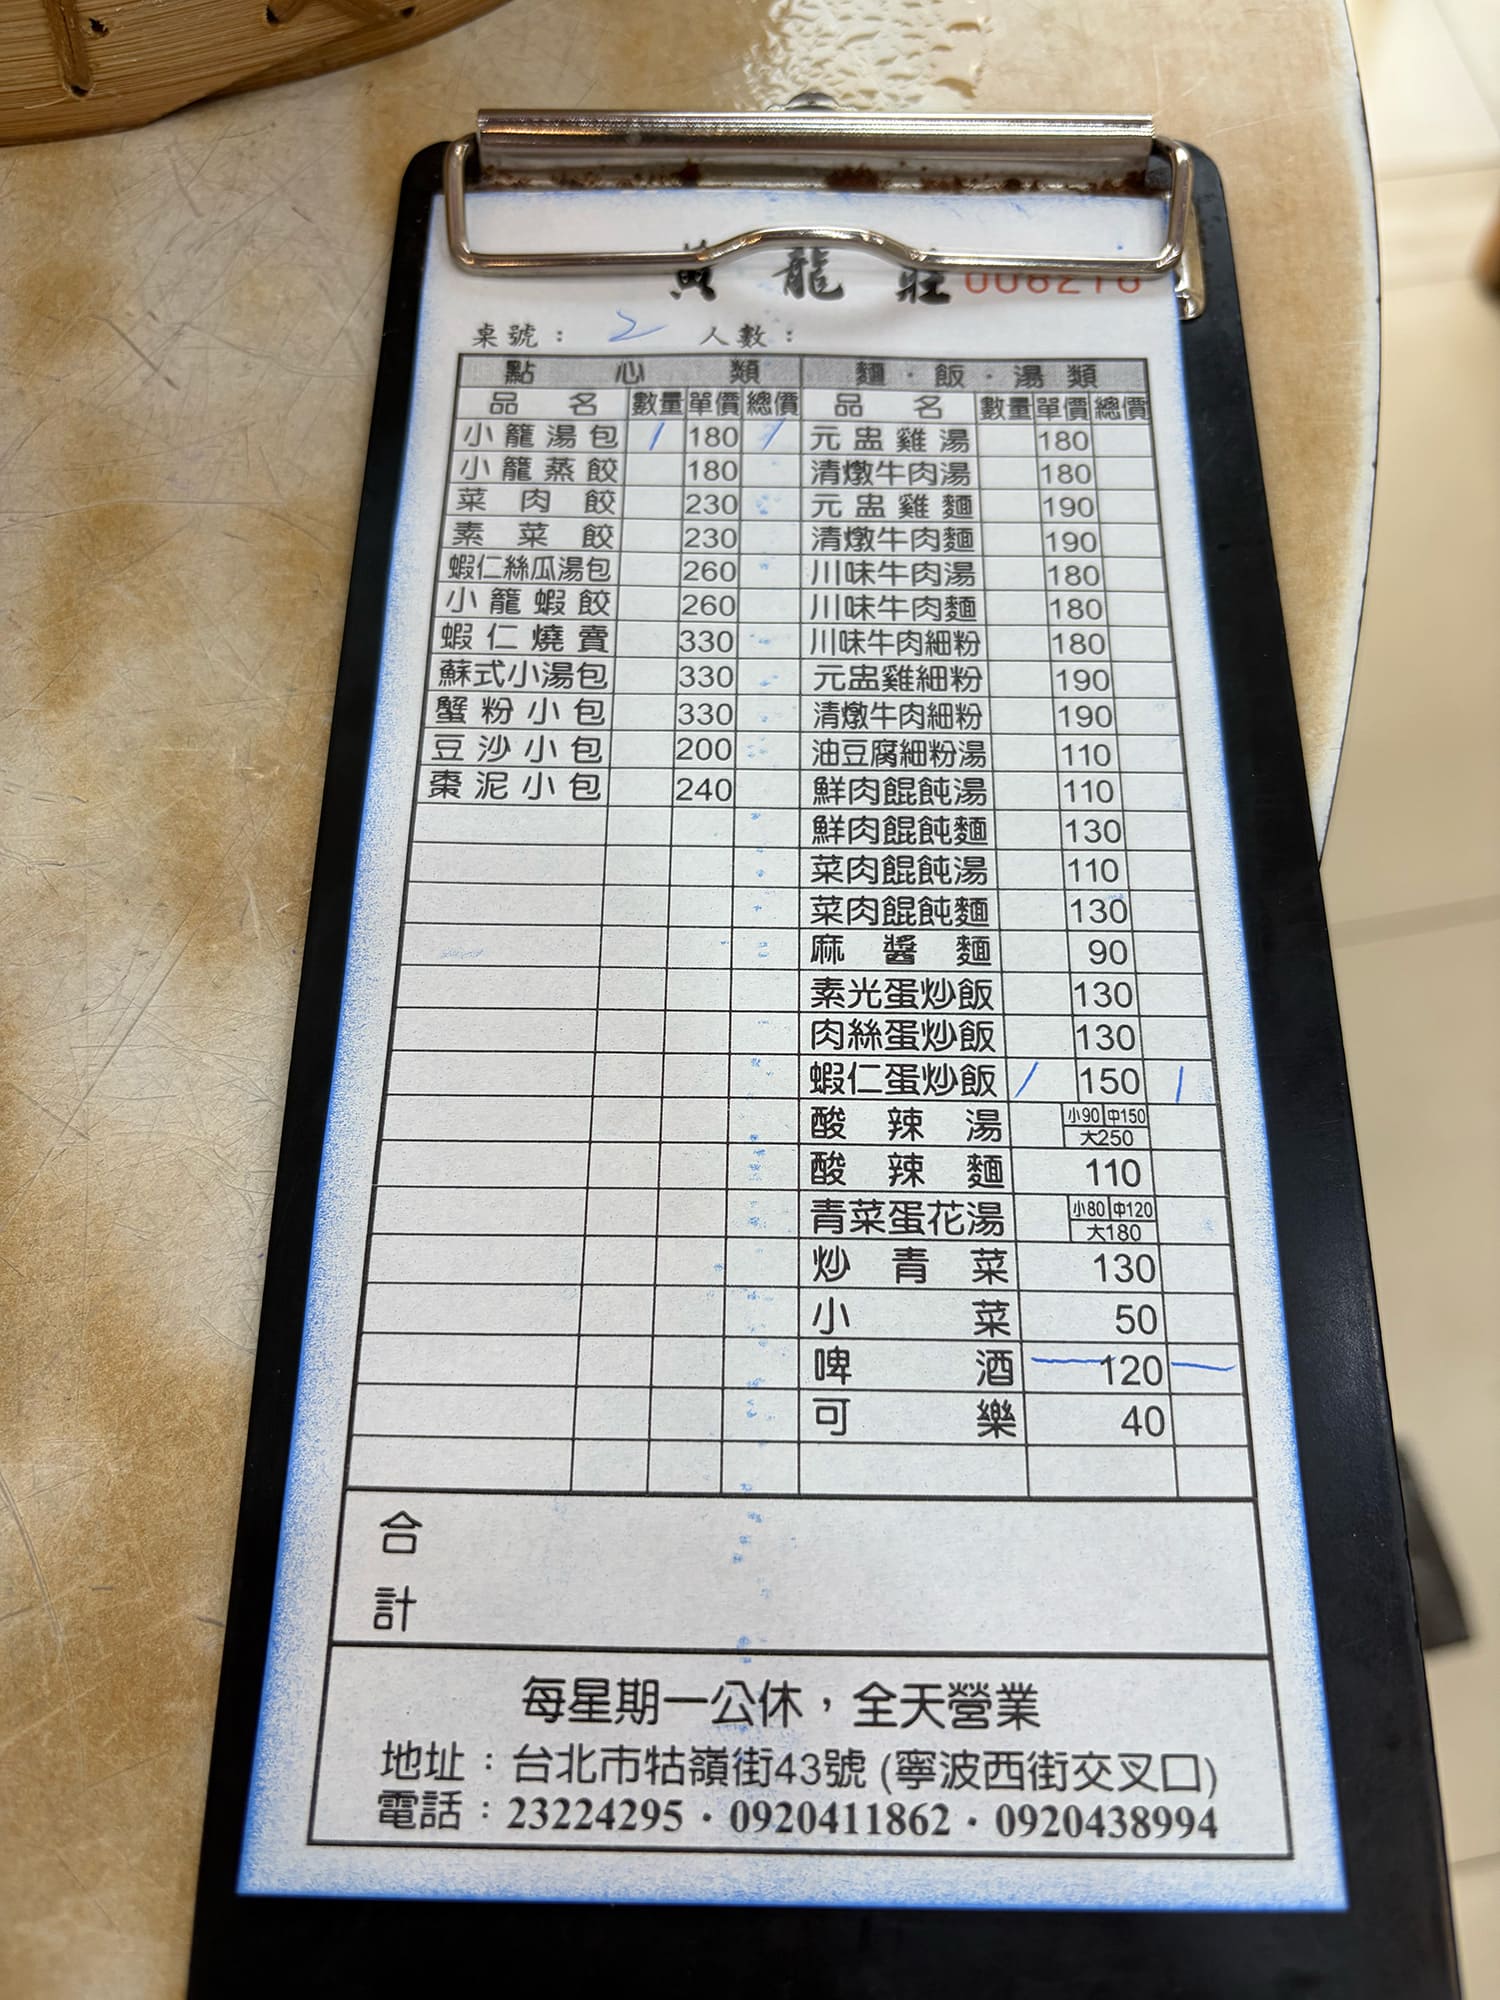 黃龍莊 008276
桌號： 2 人數：
點心類 麵·飯·湯類
品名 數量 單價 總價 品名 數量 單價 總價
小籠湯包 / 180 / 元盅雞湯 180
小籠蒸餃 180 清燉牛肉湯 180
菜肉餃 230 元盅雞麵 190
素菜餃 230 清燉牛肉麵 190
蝦仁絲瓜湯包 260 川味牛肉湯 180
小籠蝦餃 260 川味牛肉麵 180
蝦仁燒賣 330 川味牛肉細粉 180
蘇式小湯包 330 元盅雞細粉 190
蟹粉小包 330 清燉牛肉細粉 190
豆沙小包 200 油豆腐細粉湯 110
棗泥小包 240 鮮肉餛飩湯 110
鮮肉餛飩麵 130
菜肉餛飩湯 110
菜肉餛飩麵 130
麻醬麵 90
素光蛋炒飯 130
肉絲蛋炒飯 130
蝦仁蛋炒飯 / 150 /
酸辣湯 小90 中150 大250
酸辣麵 110
青菜蛋花湯 小80 中120 大180
炒青菜 130
小菜 50
啤酒 — 120 —
可樂 40
合計
每星期一公休，全天營業
地址：台北市牯嶺街43號 (寧波西街交叉口)
電話：23224295·0920411862·0920438994